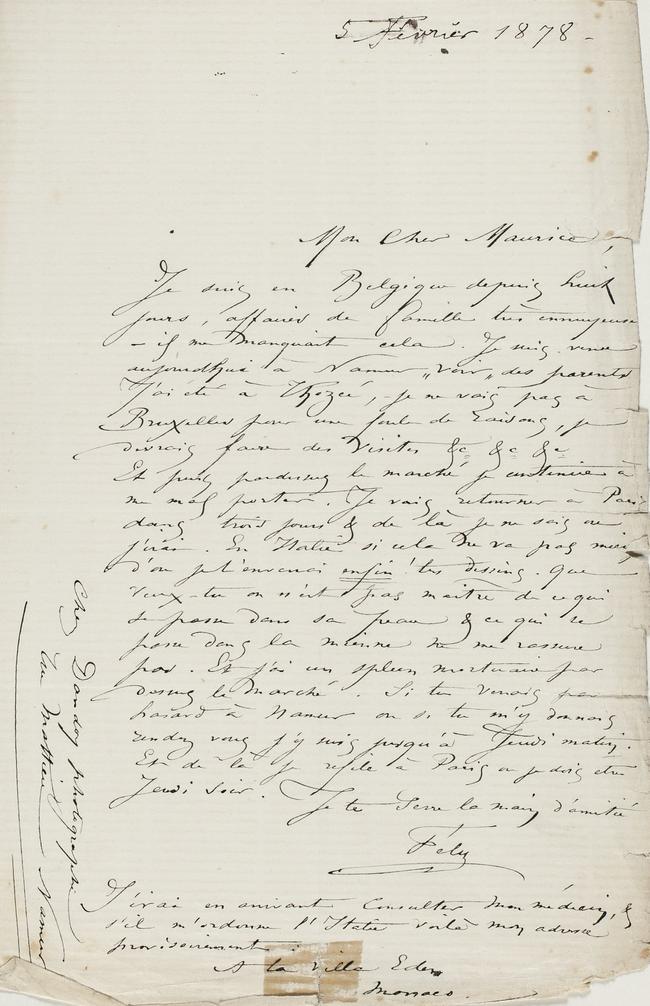 5 Février 1878 -
Mon Cher Maurice,
Je suis en Belgique depuis huit
jours, affaires de famille très ennuyeuse
- il me manquait cela. Je suis venu
aujourdhui à Namur „voir„ des parents
J'ai été à Thozée, - je ne vais pas à
Bruxelles pour une foule de raisons, je
devrais faire des Visites &c &c &c
Et puis pardessus le marché je continue à
me mal porter. Je vais retourner à Paris
dans trois jours & de là je ne sais où
j'irai. En Italie si cela ne va pas mieux,
d'où je t'enverrai enfin! tes dessins. Que
veux-tu on n'est pas maître de ce qui
se passe dans sa peau & ce qui se
passe dans la mienne ne me rassure
pas. Et j'ai un spleen mortuaire par
dessus le marché. Si tu venais par
hasard à Namur ou si tu m'y donnais
rendez vous j'y suis jusqu'à Jeudi matin.
Et de là je refile à Paris où je dois être
Jeudi soir. Je te serre la main d'amitié
Fély
J'irai en arrivant consulter mon médecin, &
s'il m'ordonne l'Italie voilà mon adresse
provisoirement :
A la villa Eden
Monaco.
Chez Dandoy photographe
Namur